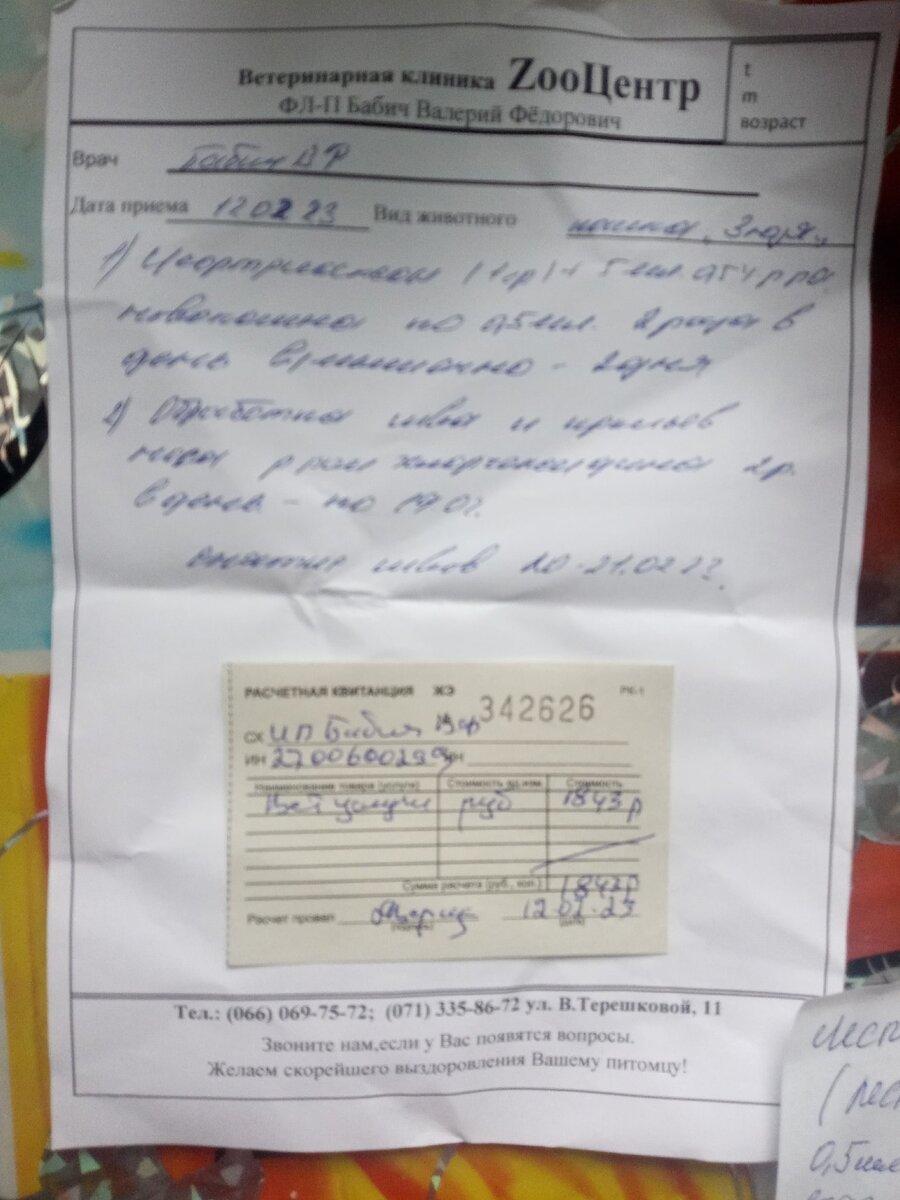 Ветеринарная клиника ZooЦентр
ФЛ-П Бабич Валерий Фёдорович
t
m
возраст
Врач Бабич В Ф
Дата приема 12 02 23 Вид животного кошка, 3 года,
1) Цефтриаксон (1 гр) + 5 мл. 0,5% р ра
новокаина по 0,5 мл. 2 раза в
день в/мышечно - 2 дня
2) Обработка шва и
2 р.
в день - по
снятие швов 20-21.02 23
РАСЧЕТНАЯ КВИТАНЦИЯ ЖЭ 342626 РК-1
СХ ИП Бабич
ИН
Наименование товара (услуги) Стоимость ед.изм. Стоимость
Вет услуги руб 1843 р
Сумма расчета (руб., коп.) 1843 р
Расчет провел 12 02.23
(подпись) (дата)
Тел.: (066) 069-75-72; (071) 335-86-72 ул. В.Терешковой, 11
Звоните нам,если у Вас появятся вопросы.
Желаем скорейшего выздоровления Вашему питомцу!
0,5мл